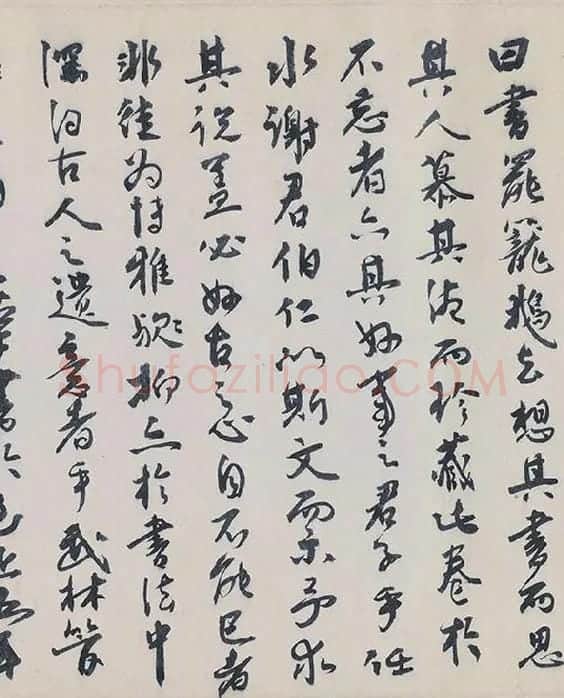 日書罷籠鵝去想其書而思
其人慕其清而珍藏此卷於
不忘者亦其好事之君子乎任
水謝君伯仁以斯文而示予求
其説蓋必好古之心自不能已者
非徒為博雅歟抑亦於書法中
深得古人之遺意者乎武林管
書於
Shufaziliao.COM